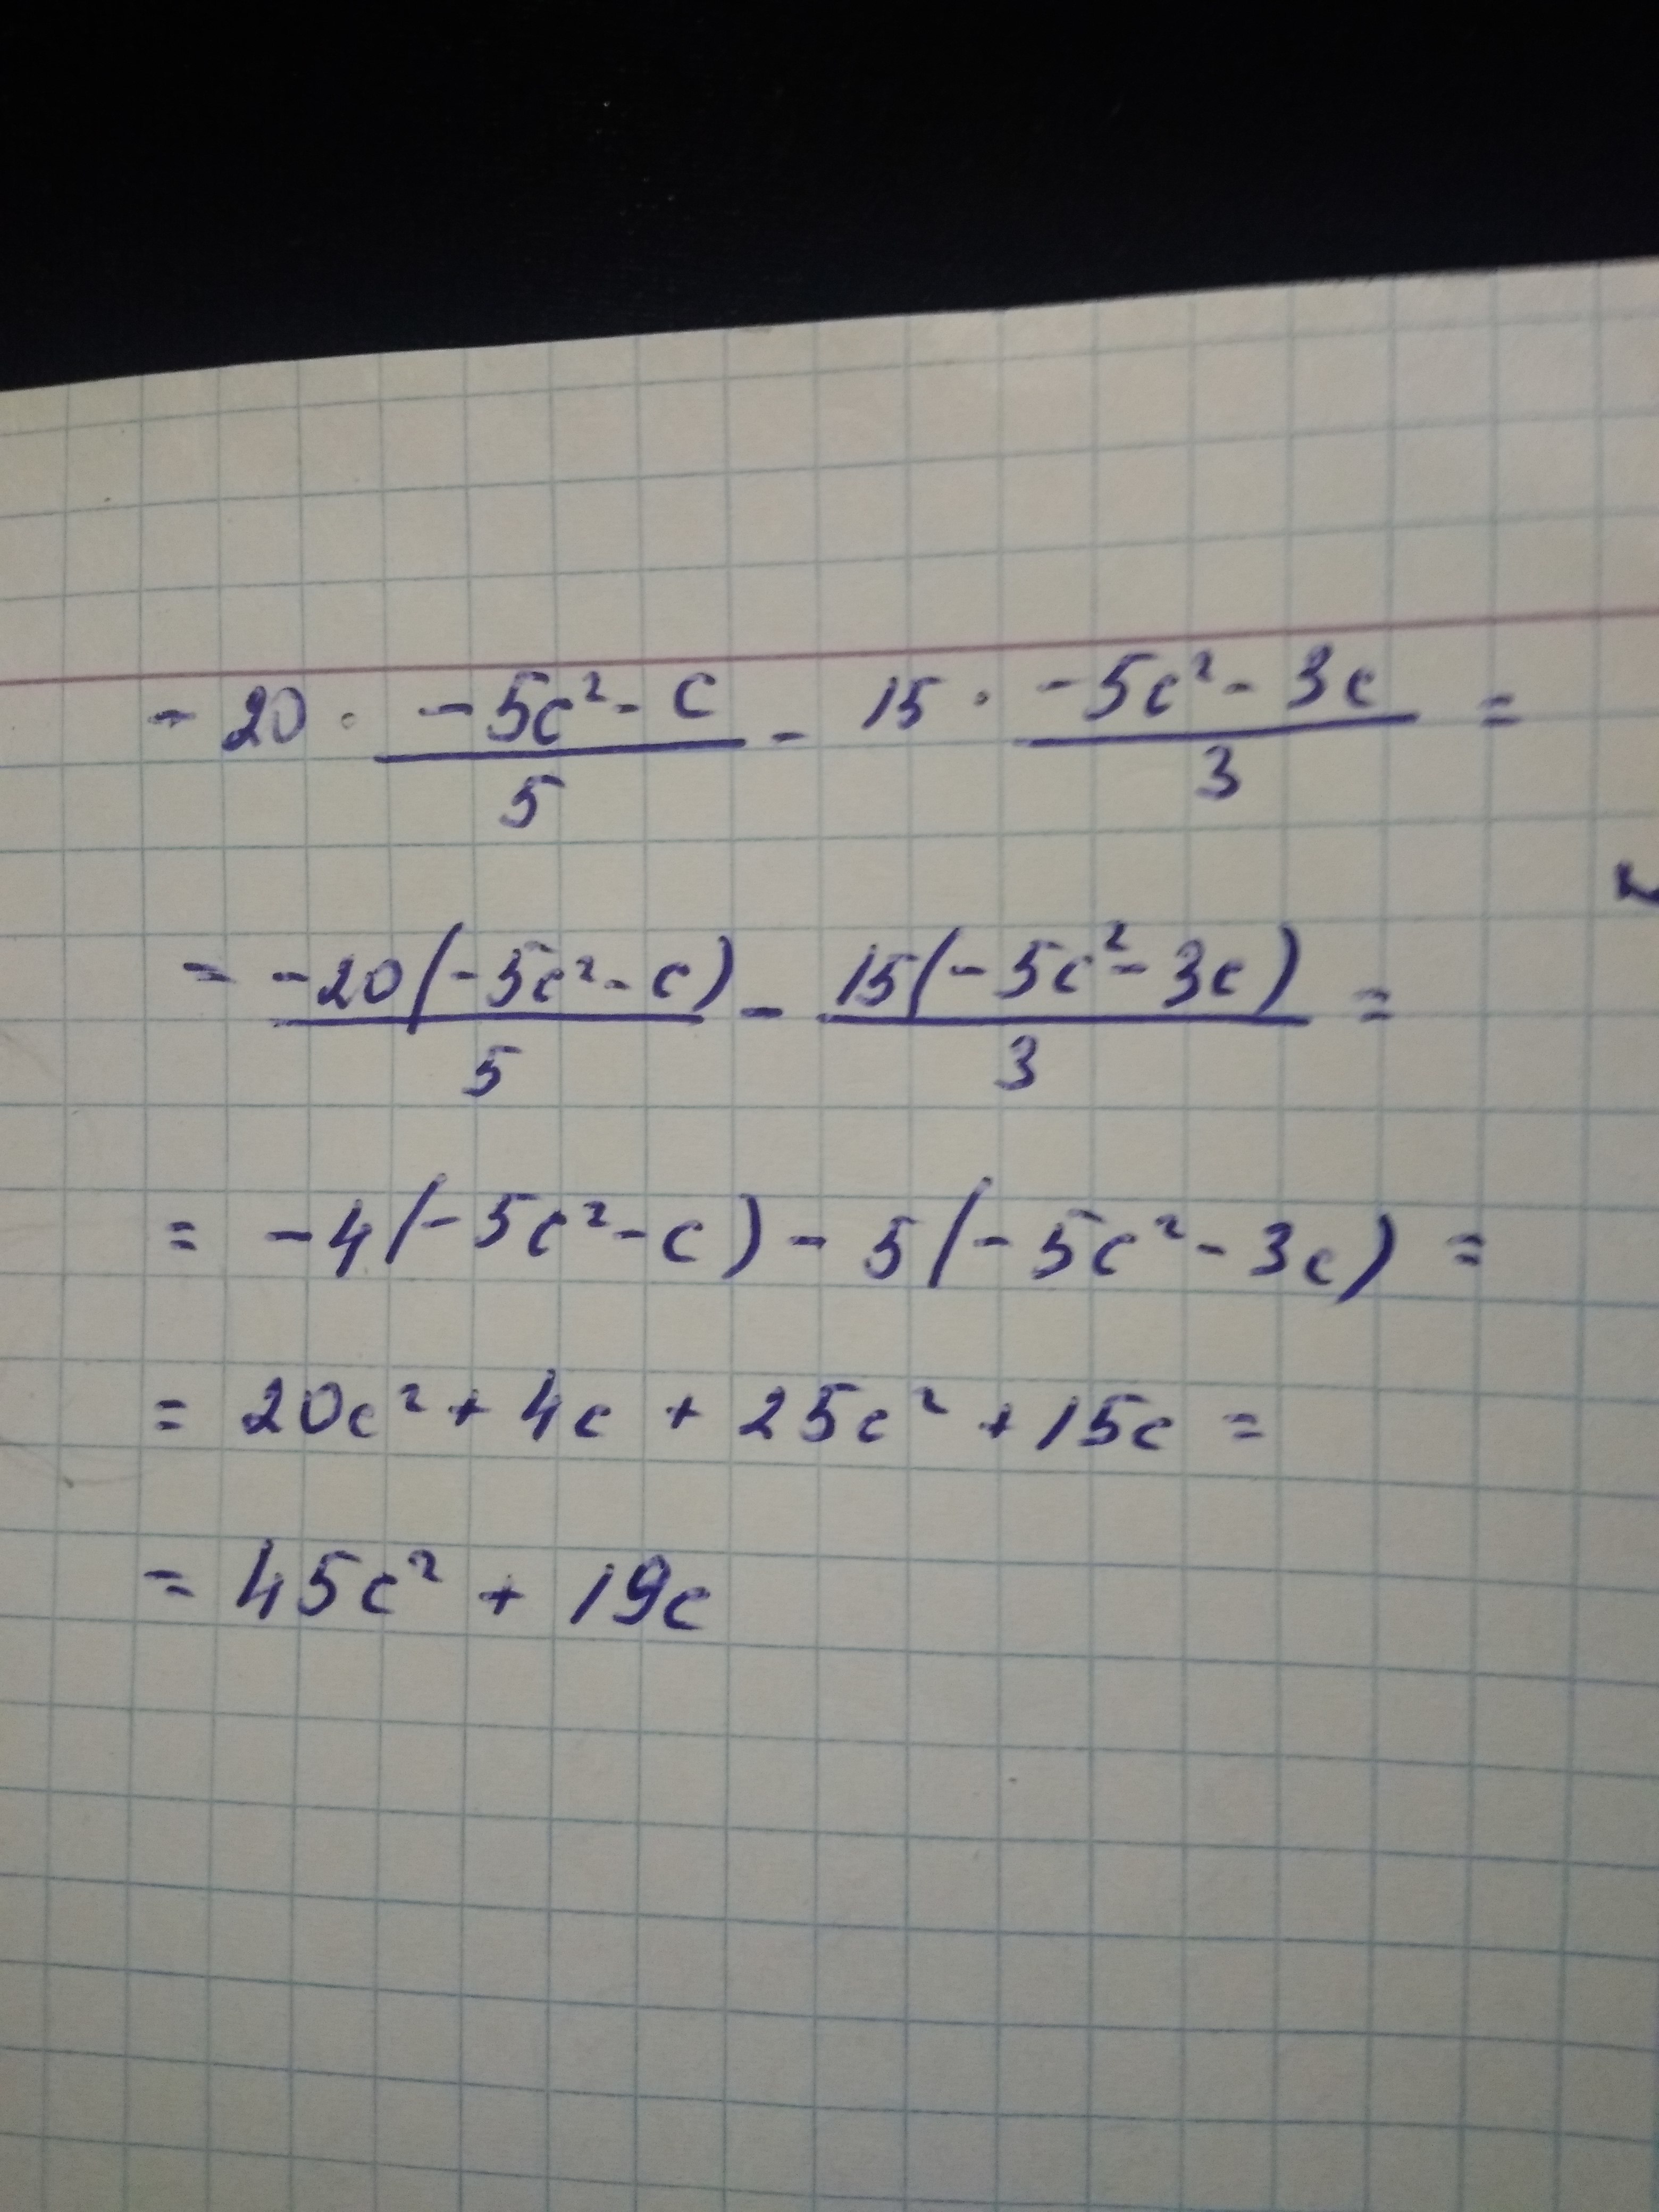 -20 · (-5c² - c)/5 - 15 · (-5c² - 3c)/3 =
= -20(-5c² - c)/5 - 15(-5c² - 3c)/3 =
= -4(-5c² - c) - 5(-5c² - 3c) =
= 20c² + 4c + 25c² + 15c =
= 45c² + 19c